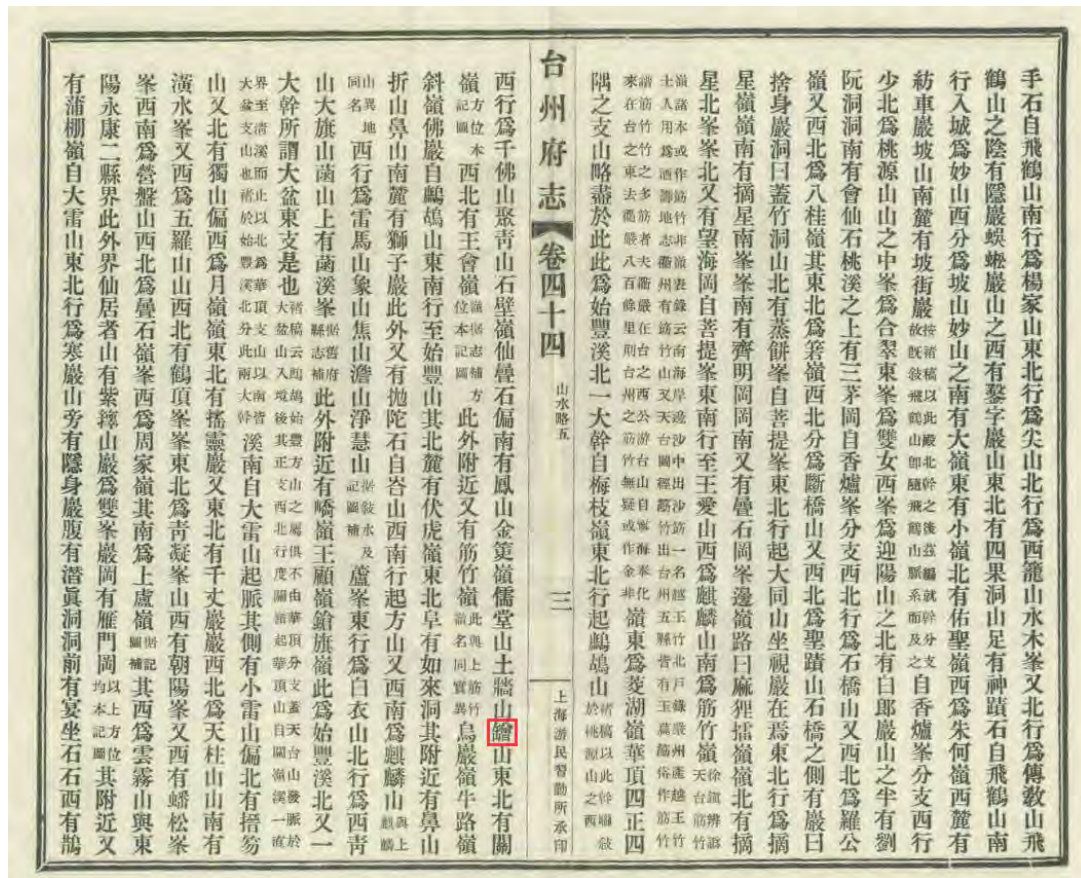 手石自飛鶴山南行爲楊家山東北行爲尖山北行爲西籠山水木峯又北行爲傳教山飛
鶴山之陰有隱巖蜈蚣巖山之西有鏊字巖山東北有四果洞山足有神蹟石自飛鶴山南
行入城爲妙山西分爲坡山妙山之南有大嶺東有小嶺北有佑聖嶺西爲朱何嶺西麓有
紡車巖坡山南麓有坡街巖按褚稿以此殿北幹之後茲編就幹分支故旣敍飛鶴山卽隨飛鶴山脈系而及之自香爐峯分支西行
少北爲桃源山山之中峯爲合翠東峯爲雙女西峯爲迎陽山之北有白郎巖山之半有劉
阮洞洞南有會仙石桃溪之上有三茅岡自香爐峯分支西北行爲石橋山又西北爲羅公
嶺又西北爲八桂嶺其東北爲箬嶺西北分爲斷橋山又西北爲聖蹟山石橋之側有巖曰
捨身巖洞曰蓋竹洞山北有蒸餅峯自菩提峯東北行起大同山坐視巖在焉東北行爲摘
星嶺嶺南有摘星南峯峯南有齊明岡岡南又有疊石岡峯邊嶺路曰麻狸擂嶺嶺北有摘
星北峯峯北又有望海岡自菩提峯東南行至王愛山西爲麒麟山南爲筋竹嶺徐鎭辨譌天台筋竹
嶺諸本或作筋竹非嶺表錄云南海岸邊沙中出沙筋一名越王竹北戶錄嚴州產越王竹土人用爲酒籌地志衢州有筋竹山又天台圖經筋竹出台州五縣皆有玉莫筋俗作筋竹
諧筋竹竹之多筋者夫衢嚴在台之西公游台山自寧海奉化來在台之東去衢嚴八百餘里則台州之筋竹無疑或作金非嶺東爲菱湖嶺華頂四正四
隅之支山略盡於此此爲始豐溪北一大幹自梅枝嶺東北行起鷓鴣山褚稿以此幹聯敍於桃源山之西
台州府志 卷四十四 山水略五 三 上海游民習勤所承印
西行爲千佛山聚靑山石壁嶺仙疊石偏南有鳳山金筻嶺儒堂山土牆山䃂山東北有關
嶺方位本記圖西北有王會嶺嶺據志補方位本記圖此外附近又有筋竹嶺此與上筋竹嶺名同實異烏巖嶺牛路嶺
斜嶺佛巖自鷓鴣山東南行至始豐山其北麓有伏虎嶺東北阜有如來洞其附近有鼻山
折山鼻山南麓有獅子巖此外又有拋陀石自峇山西南行起方山又西南爲麒麟山與上麒麟
山異地同名西行爲雷馬山象山焦山澹山淨慧山據敍水及記圖補蘆峯東行爲白衣山北行爲西靑
山大旗山菡山上有菡溪峯據舊府縣志補此外附近有嶠嶺王顧嶺鎗旗嶺此爲始豐溪北又一
大幹所謂大盆東支是也褚稿云鷓鴣始豐方山之屬俱不由華頂分支蓋天台山發脈於大盆山入境後其正支西北行度關嶺起華頂山自關嶺溪一直
界至淸溪而止以北爲華頂支山以南皆大盆支山也褚於始豐溪北分此兩大幹溪南自大雷山起脈其側有小雷山偏北有搢笏
山又北有獨山偏西爲月嶺嶺東北有搖靈巖又東北有千丈巖巖西北爲天柱山山南有
潢水峯又西爲五羅山山西北有鶴頂峯峯東北爲靑凝峯山西有朝陽峯又西有蟠松峯
峯西南爲營盤山西北爲疊石嶺峯西爲周家嶺其南爲上盧嶺據記圖補其西爲雲霧山與東
陽永康二縣界此外界仙居者山有紫籜山巖爲雙峯巖岡有雁門岡以上方位均本記圖其附近又
有蒲棚嶺自大雷山東北行爲寒巖山旁有隱身巖巖腹有潛眞洞洞前有宴坐石石西有鵲